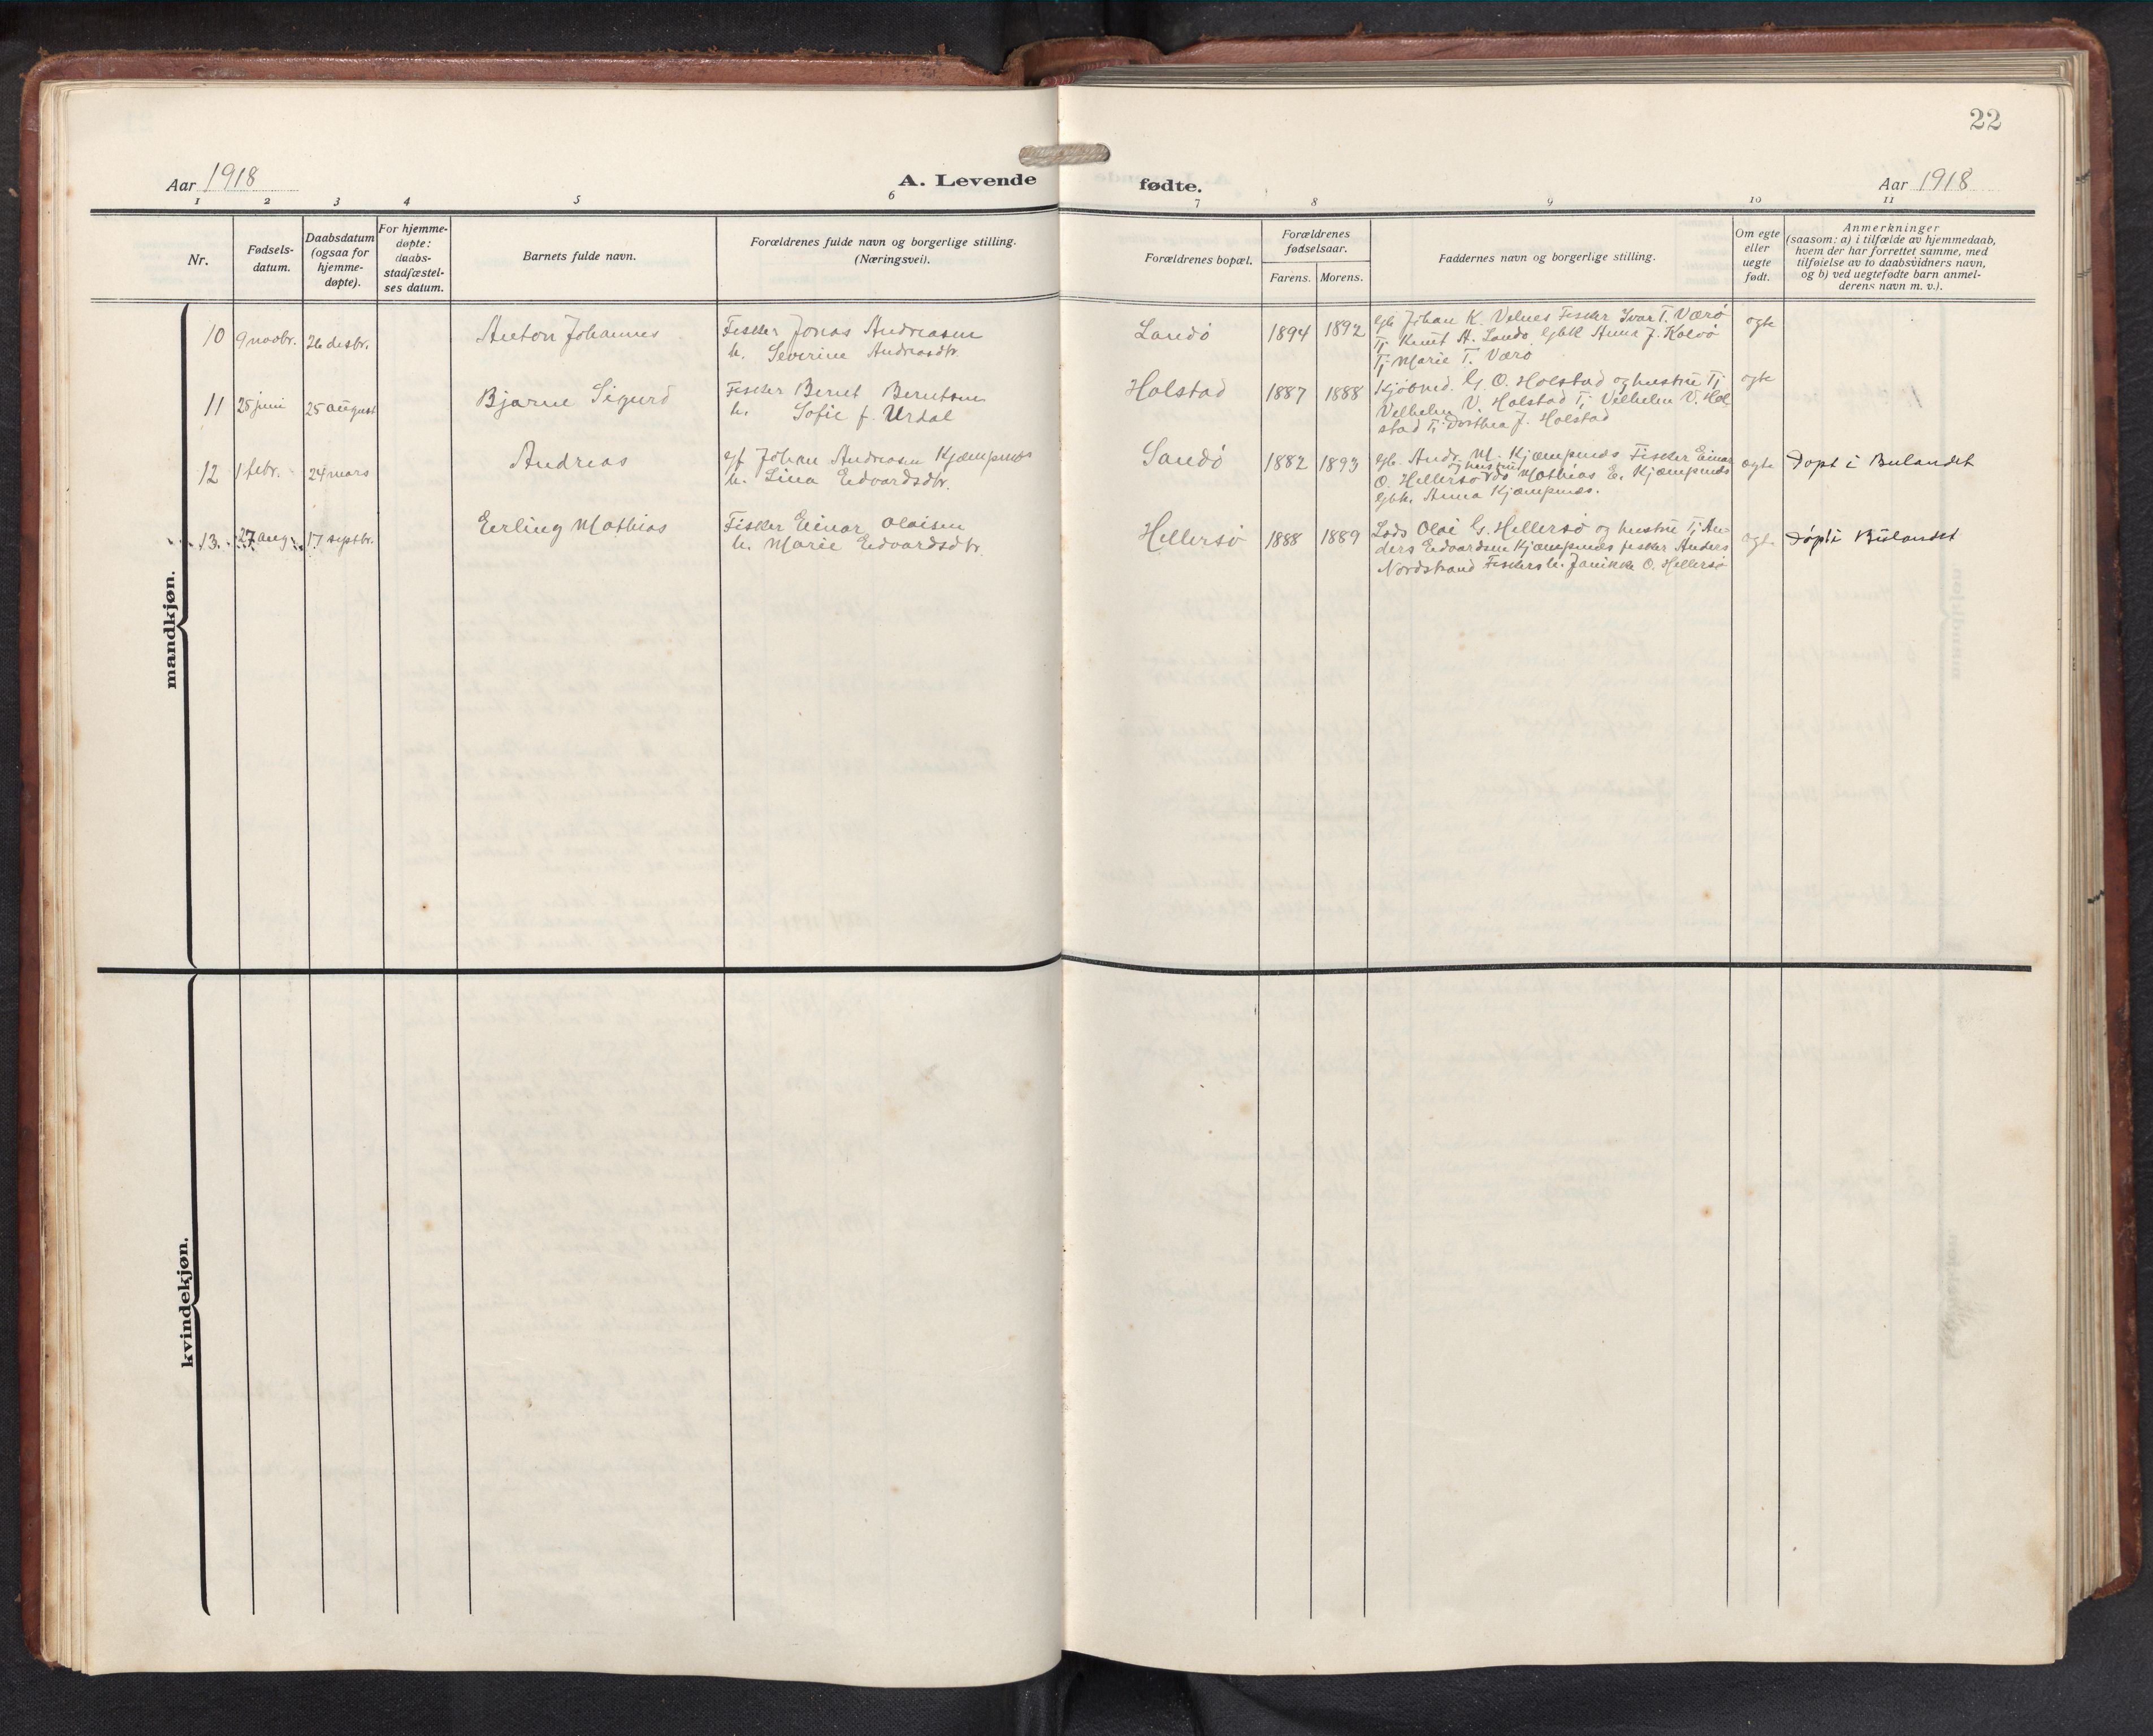 22
Aar 1918
A. Levende fødte.
Aar 1918
1 2 3 4 5 6 7 8 9 10 11
Nr.
Fødsels-
datum.
Daabsdatum
(ogsaa for
hjemme-
døpte).
For hjemme-
døpte:
daabs-
stadfæstel-
ses datum.
Barnets fulde navn.
Forældrenes fulde navn og borgerlige stilling.
(Næringsvei).
Forældrenes bopæl.
Forældrenes
fødselsaar.
Farens. Morens.
Faddernes navn og borgerlige stilling.
Om egte
eller
uegte
født.
Anmerkninger
(saasom: a) i tilfælde av hjemmedaab,
hvem der har forrettet samme, med
tilføielse av to daabsvidners navn,
og b) ved uegtefødte barn anmel-
derens navn m. v.).
mandkjøn.
10 9 novbr. 26 desbr. Anton Johannes
Fisker Jonas Andreasen
h. Severine Andreasdtr.
Landø 1894 1892
Gb. Johan K. Velnes Fisker Ivar T. Værø
Tj. Knut A. Landø. Gbk Anna J. Kalvø
Tj. Marie T. Værø
egte
11 25 juni 25 august Bjarne Sigurd
Fisker Bernt Berntsen
h. Sofie f. Urdal
Holstad 1887 1888
Kjøbmd. G. O. Holstad og hustru Tj
Velhelm V. Holstad Tj. Velhelm V. Hol-
stad Tj. Dorthea J. Holstad
egte
12 1 febr. 24 mars Andreas
gf Johan Andreasen Kjempenes
h. Lina Edvardsdtr.
Sandø 1882 1893
gb. Andr. M. Kjempenes Fisker Einar
O. Hellersø og hustru Mathias E. Kjempenes
Gbk. Anna Kjempenes.
egte
Døpt i Bulandet
13. 27 aug. 17 septbr. Erling Mathias
Fisker Einar Olaisen
h. Marie Edvardsdtr.
Hellersø 1888 1889
Lods Olai G. Hellersø og hustru Tj An-
ders Edvardsen Kjempenes fisker Anders
Nordstrand Fiskers h. Janikke O. Hellersø
egte
Døpt i Bulandet
kvindekjøn.